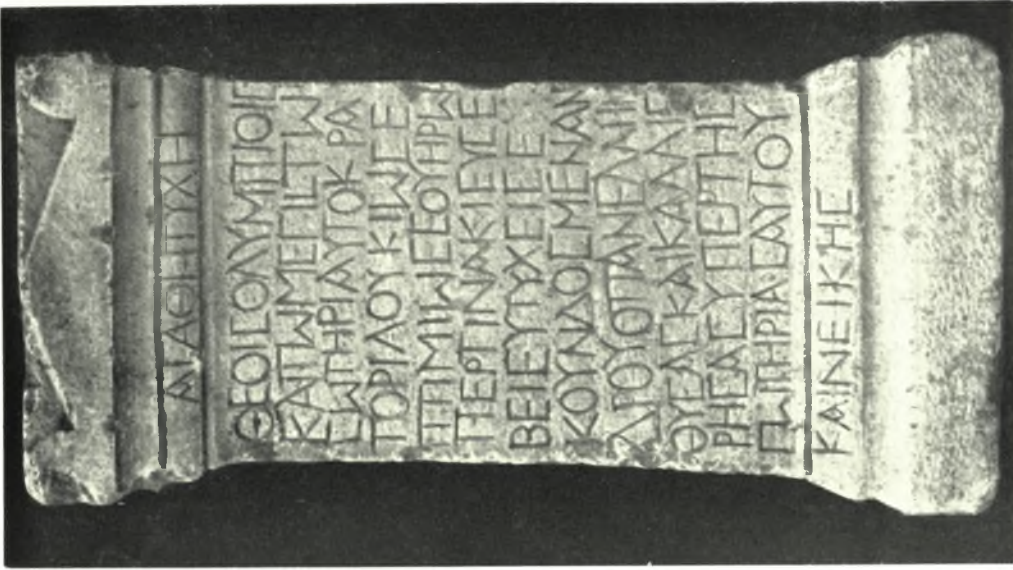 ΑΓΑΘΗΙΤΥΧΗ
ΘΕΟΙΣΟΛΥΜΠΙΟΙΣ
ΚΑΙΤΩΜΕΓΙΣΤΩ
ΣΩΤΗΡΙΑΥΤΟΚΡΑ
ΤΟΡΙΛΟΥΚΙΩΣΕ
ΠΤΙΜΙΩΣΕΟΥΗΡΩ
ΠΕΡΤΙΝΑΚΙΕΥΣΕ
ΒΕΙΕΥΤΥΧΕΙΣΕ
ΚΟΥΝΔΟΣΜΕΝΑΝ
ΔΡΟΥΟΠΑΝΕΛΛΗΝ
ΘΥΣΑΣΚΑΙΚΑΛΛΙΕ
ΡΗΣΑΣΥΠΕΡΤΗΣ
ΣΩΤΗΡΙΑΣΑΥΤΟΥ
ΚΑΙΝΕΙΚΗΣ